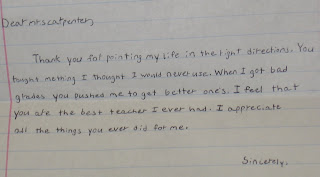 Dear mrs carpenter,
Thank you for pointing my life in the right directions. You
taught nothing I thought I would never use. When I got bad
grades you pushed me to get better one's. I feel that
you are the best teacher I ever had. I appreciate
all the things you ever did for me.
Sincerely,